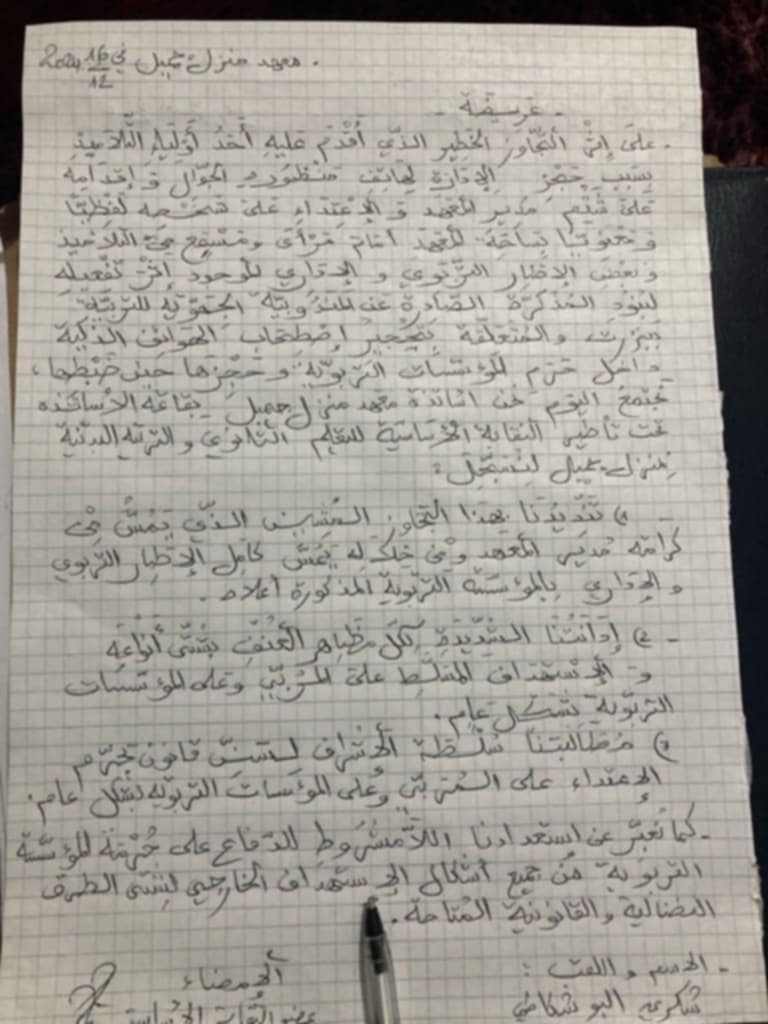 . معهد منزل جميل في 16/12 2024
- عريضة -
- على إثر التجاوز الخطير الذي أقدم عليه أحد أولياء التلاميذ
بسبب حجز الإدارة لهاتف منظوره الجوال و إقدامه
على شتم مدير المعهد و الإعتداء على شخصه لفظيا
و معنويا بساحة المعهد أمام مرأى ومسمع من التلاميذ
و بعض الإطار التربوي و الإداري الموجود إثر تفعيله
لبنود المذكرة الصادرة عن المندوبية الجهوية للتربية
ببنزرت والمتعلقة بتحجير إصطحاب الهواتف الذكية
داخل حرم المؤسسات التربوية و حجزها حين ضبطها،
نجتمع اليوم نحن أساتذة معهد منزل جميل بقاعة الأساتذة
تحت تأطير النقابة الأساسية للتعليم الثانوي و التربية البدنية
بمنزل جميل لنسجل :
1) تنديدنا بهذا التجاوز المشين الذي يمس من
كرامة مدير المعهد ومن خلاله يمس كامل الإطار التربوي
و الإداري بالمؤسسة التربوية المذكورة أعلاه .
- 2) إدانتنا الشديدة لكل مظاهر العنف بشتى أنواعه
و الإستهداف المسلط على المربي وعلى المؤسسات
التربوية بشكل عام.
3) مطالبتنا سلطة الأشراف لسن قانون يجرم
الإعتداء على المربي وعلى المؤسسات التربوية بشكل عام.
- كما نعبر عن استعدادنا اللامشروط للدفاع على حرمة المؤسسة
التربوية من جميع أشكال الإستهداف الخارجي بشتى الطرق
النضالية والقانونية المتاحة .
- الاسم و اللقب : الأمضاء
شكري البوشكامي عضو النقابة الأساسية